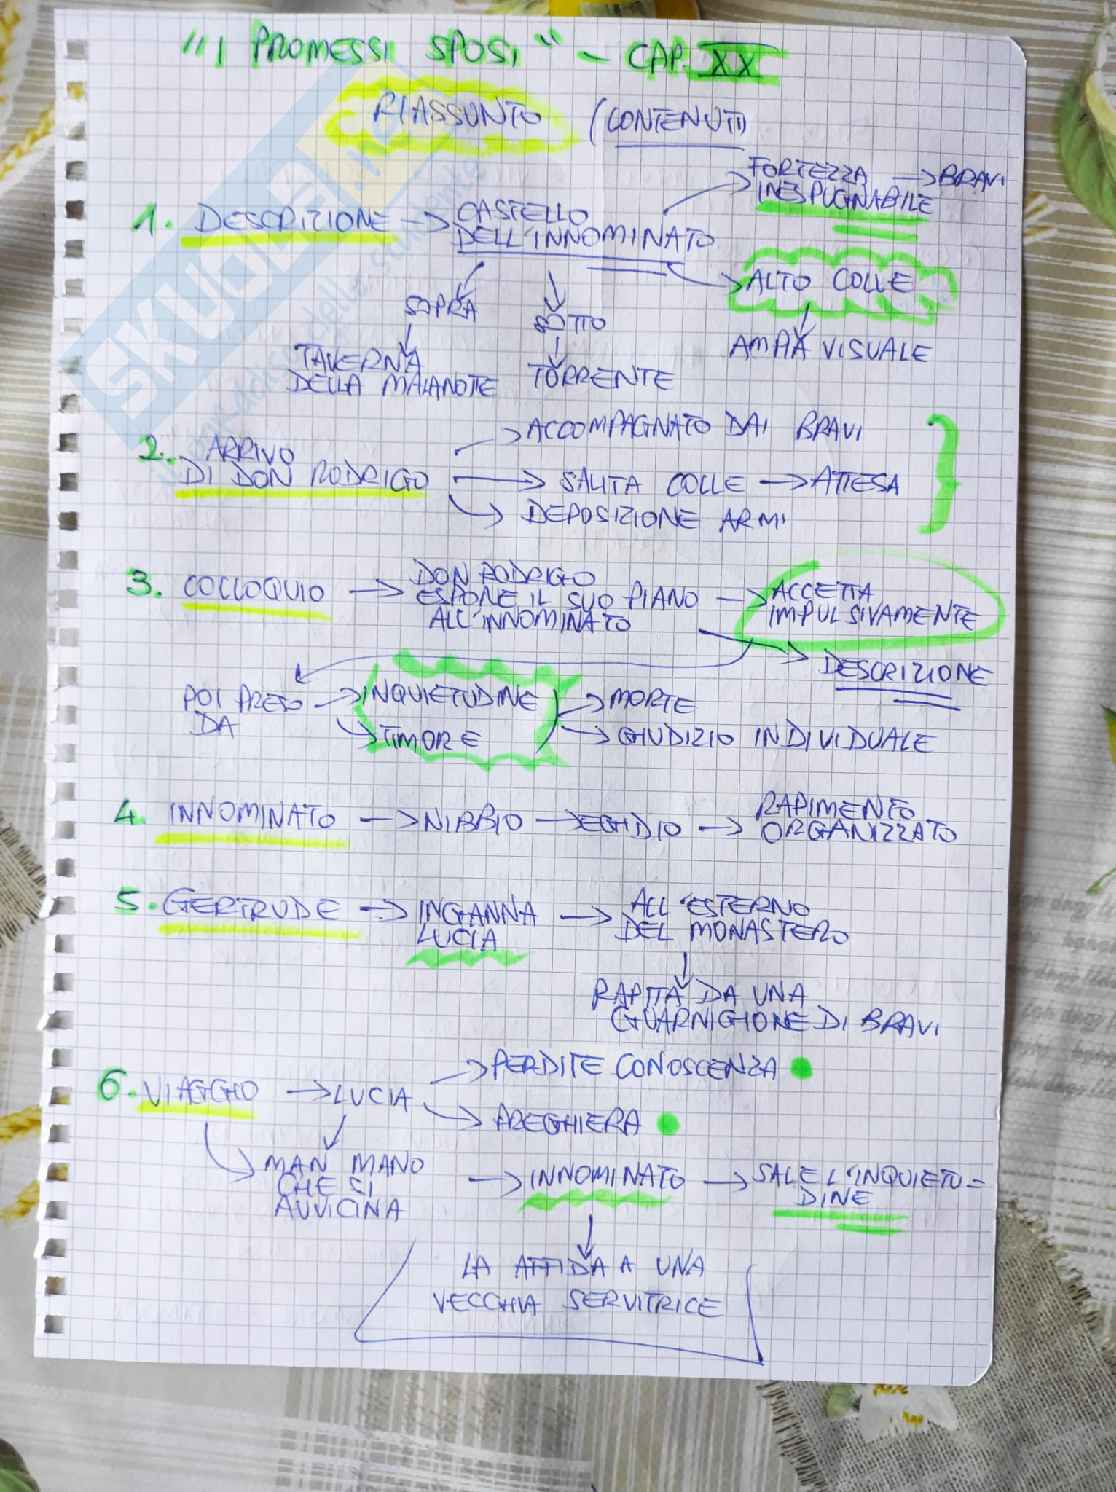 "I PROMESSI SPOSI" - CAP. XX
RIASSUNTO (CONTENUTI)
1. DESCRIZIONE → CASTELLO
DELL'INNOMINATO
FORTEZZA → BRAVI
INESPUGNABILE
ALTO COLLE
AMPIA VISUALE
SOPRA
SOTTO
TAVERNA
DELLA MALANOTTE
TORRENTE
2. ARRIVO
DI DON RODRIGO
→ ACCOMPAGNATO DAI BRAVI
→ SALITA COLLE → ATTESA
→ DEPOSIZIONE ARMI
3. COLLOQUIO → DON RODRIGO
ESPONE IL SUO PIANO
ALL'INNOMINATO
→ ACCETTA
IMPULSIVAMENTE
→ DESCRIZIONE
POI PRESO
DA
→ INQUIETUDINE
→ TIMORE
→ MORTE
→ GIUDIZIO INDIVIDUALE
4. INNOMINATO → NIBBIO → EGIDIO → RAPIMENTO
ORGANIZZATO
5. GERTRUDE → INGANNA
LUCIA
→ ALL'ESTERNO
DEL MONASTERO
RAPITA DA UNA
GUARNIGIONE DI BRAVI
6. VIAGGIO → LUCIA
→ PERDITE CONOSCENZA
→ PREGHIERA
MAN MANO
CHE SI
AVVICINA
→ INNOMINATO → SALE L'INQUIETU=
DINE
LA AFFIDA A UNA
VECCHIA SERVITRICE